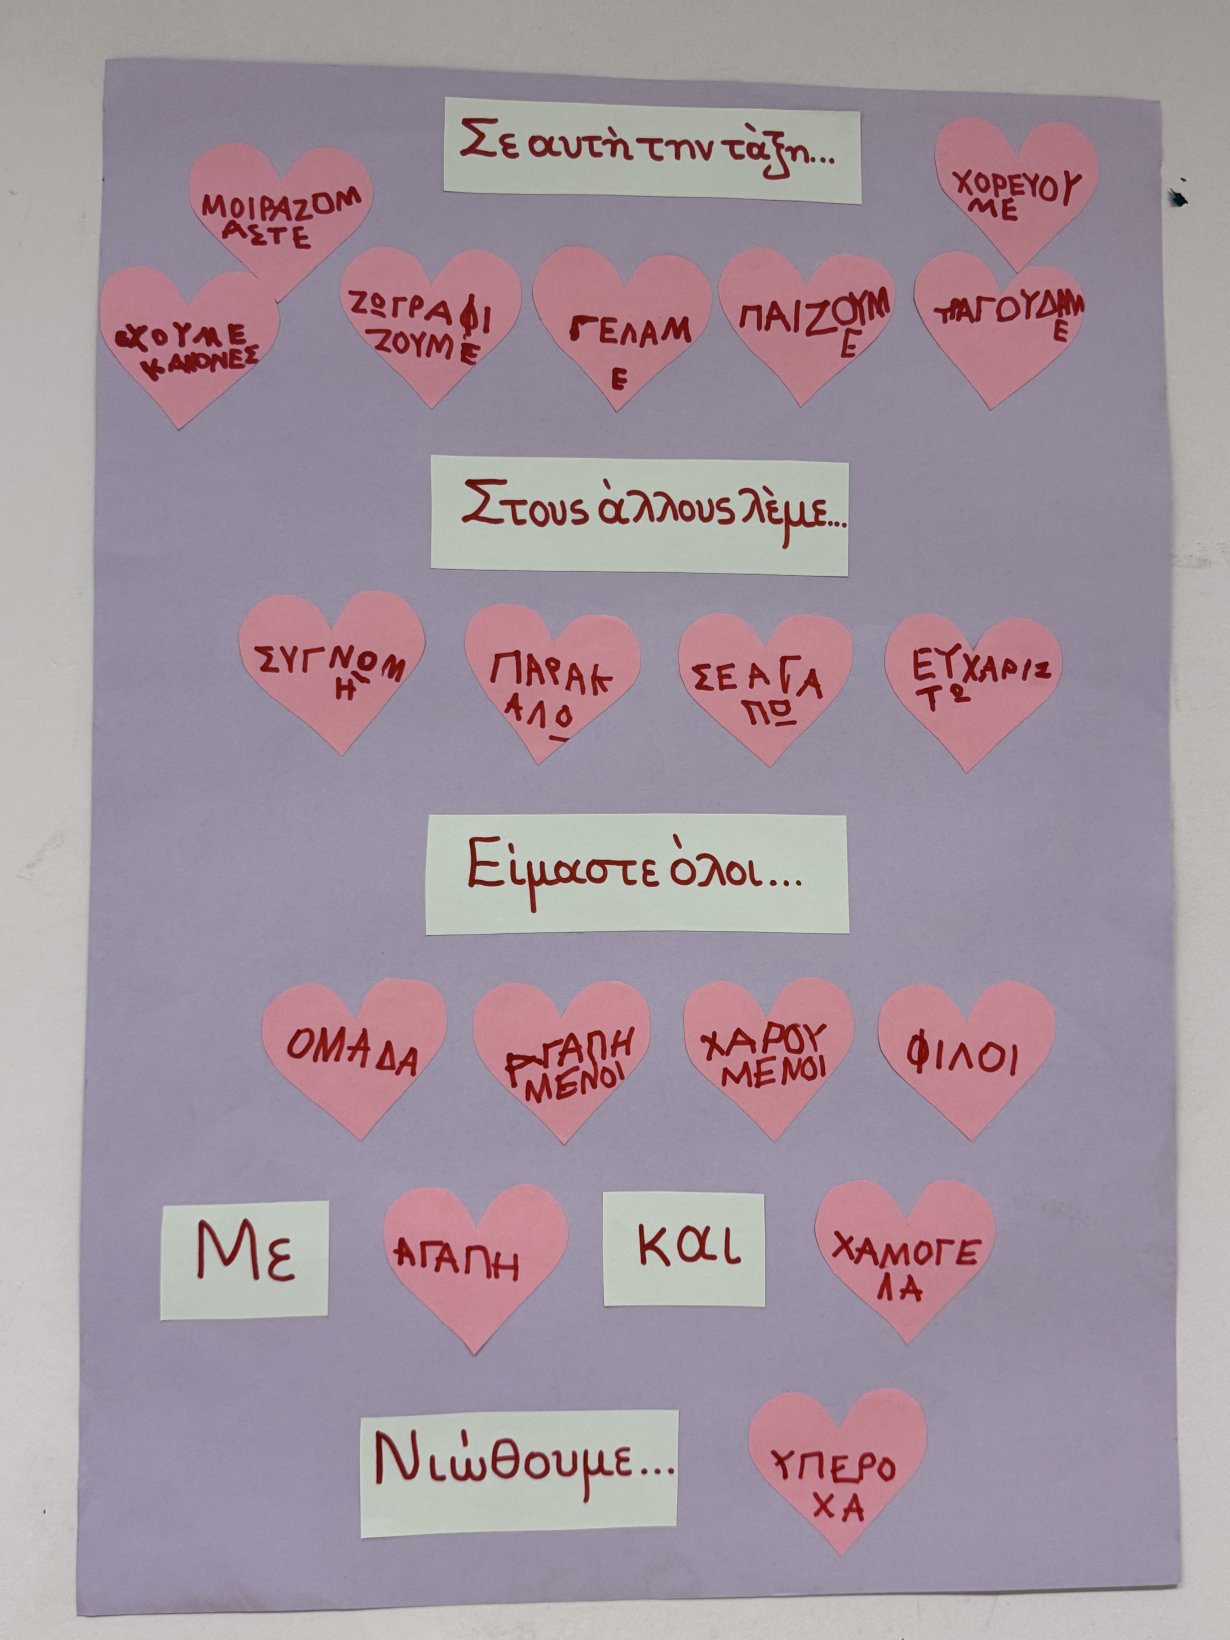 Σε αυτή την τάξη...
ΜΟΙΡΑΖΟΜ
ΑΣΤΕ
ΧΟΡΕΥΟΥ
ΜΕ
ΕΧΟΥΜΕ
ΚΑΝΟΝΕΣ
ΖΩΓΡΑΦΙ
ΖΟΥΜΕ
ΓΕΛΑΜ
Ε
ΠΑΙΖΟΥΜ
Ε
ΤΡΑΓΟΥΔΑΜ
Ε
Στους άλλους λέμε...
ΣΥΓΝΩΜ
Η
ΠΑΡΑΚ
ΑΛΩ
ΣΕ ΑΓΑ
ΠΩ
ΕΥΧΑΡΙΣ
ΤΩ
Είμαστε όλοι...
ΟΜΑΔΑ
ΑΓΑΠΗ
ΜΕΝΟΙ
ΧΑΡΟΥ
ΜΕΝΟΙ
ΦΙΛΟΙ
Με
ΑΓΑΠΗ
και
ΧΑΜΟΓΕ
ΛΑ
Νιώθουμε...
ΥΠΕΡΟ
ΧΑ